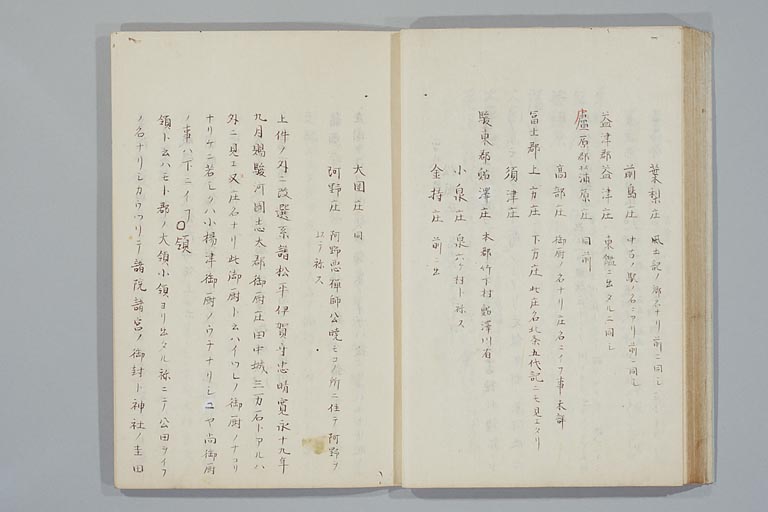 葉梨庄 風土記ノ郷名ナリ前ニ同シ
前島庄 中古ノ駅ノ名ニアリ前ニ同シ
益津郡益津庄 東鑑ニ出タルニ同シ
廬原郡蒲原庄 同前
高部庄 御厨ノ名ナリ庄名ニイフ事未詳
冨士郡上方庄 下方庄此庄名北条五代記ニモ見エタリ
須津庄
駿東郡鮎澤庄 本郡竹下村鮎澤川有
小泉庄 泉六ケ村ト称ス
金持庄 前ニ出
大岡庄 同
阿野庄 阿野悪禅師公暁モコノ所ニ住テ阿野ヲ
以テ称ス
上件ノ外ニ改選系譜松平伊賀守忠晴寛永十九年
九月賜駿河國志太郡御厨庄田中城三万石トアルハ
外ニ見エヌ庄名ナリ此御厨ト云ハイツレノ御厨ノナコリ
ナリケニ若シクハ小楊津御厨ノウチナリシユヤ尚御厨
ノ事ハ下ニイフ〇領
領ト云ハモト郡ノ大領小領ヨリ出タル称ニテ公田ライフ
ノ名ナリシカウツリテ諸院諸宮ノ御封ト神社ノ圭田